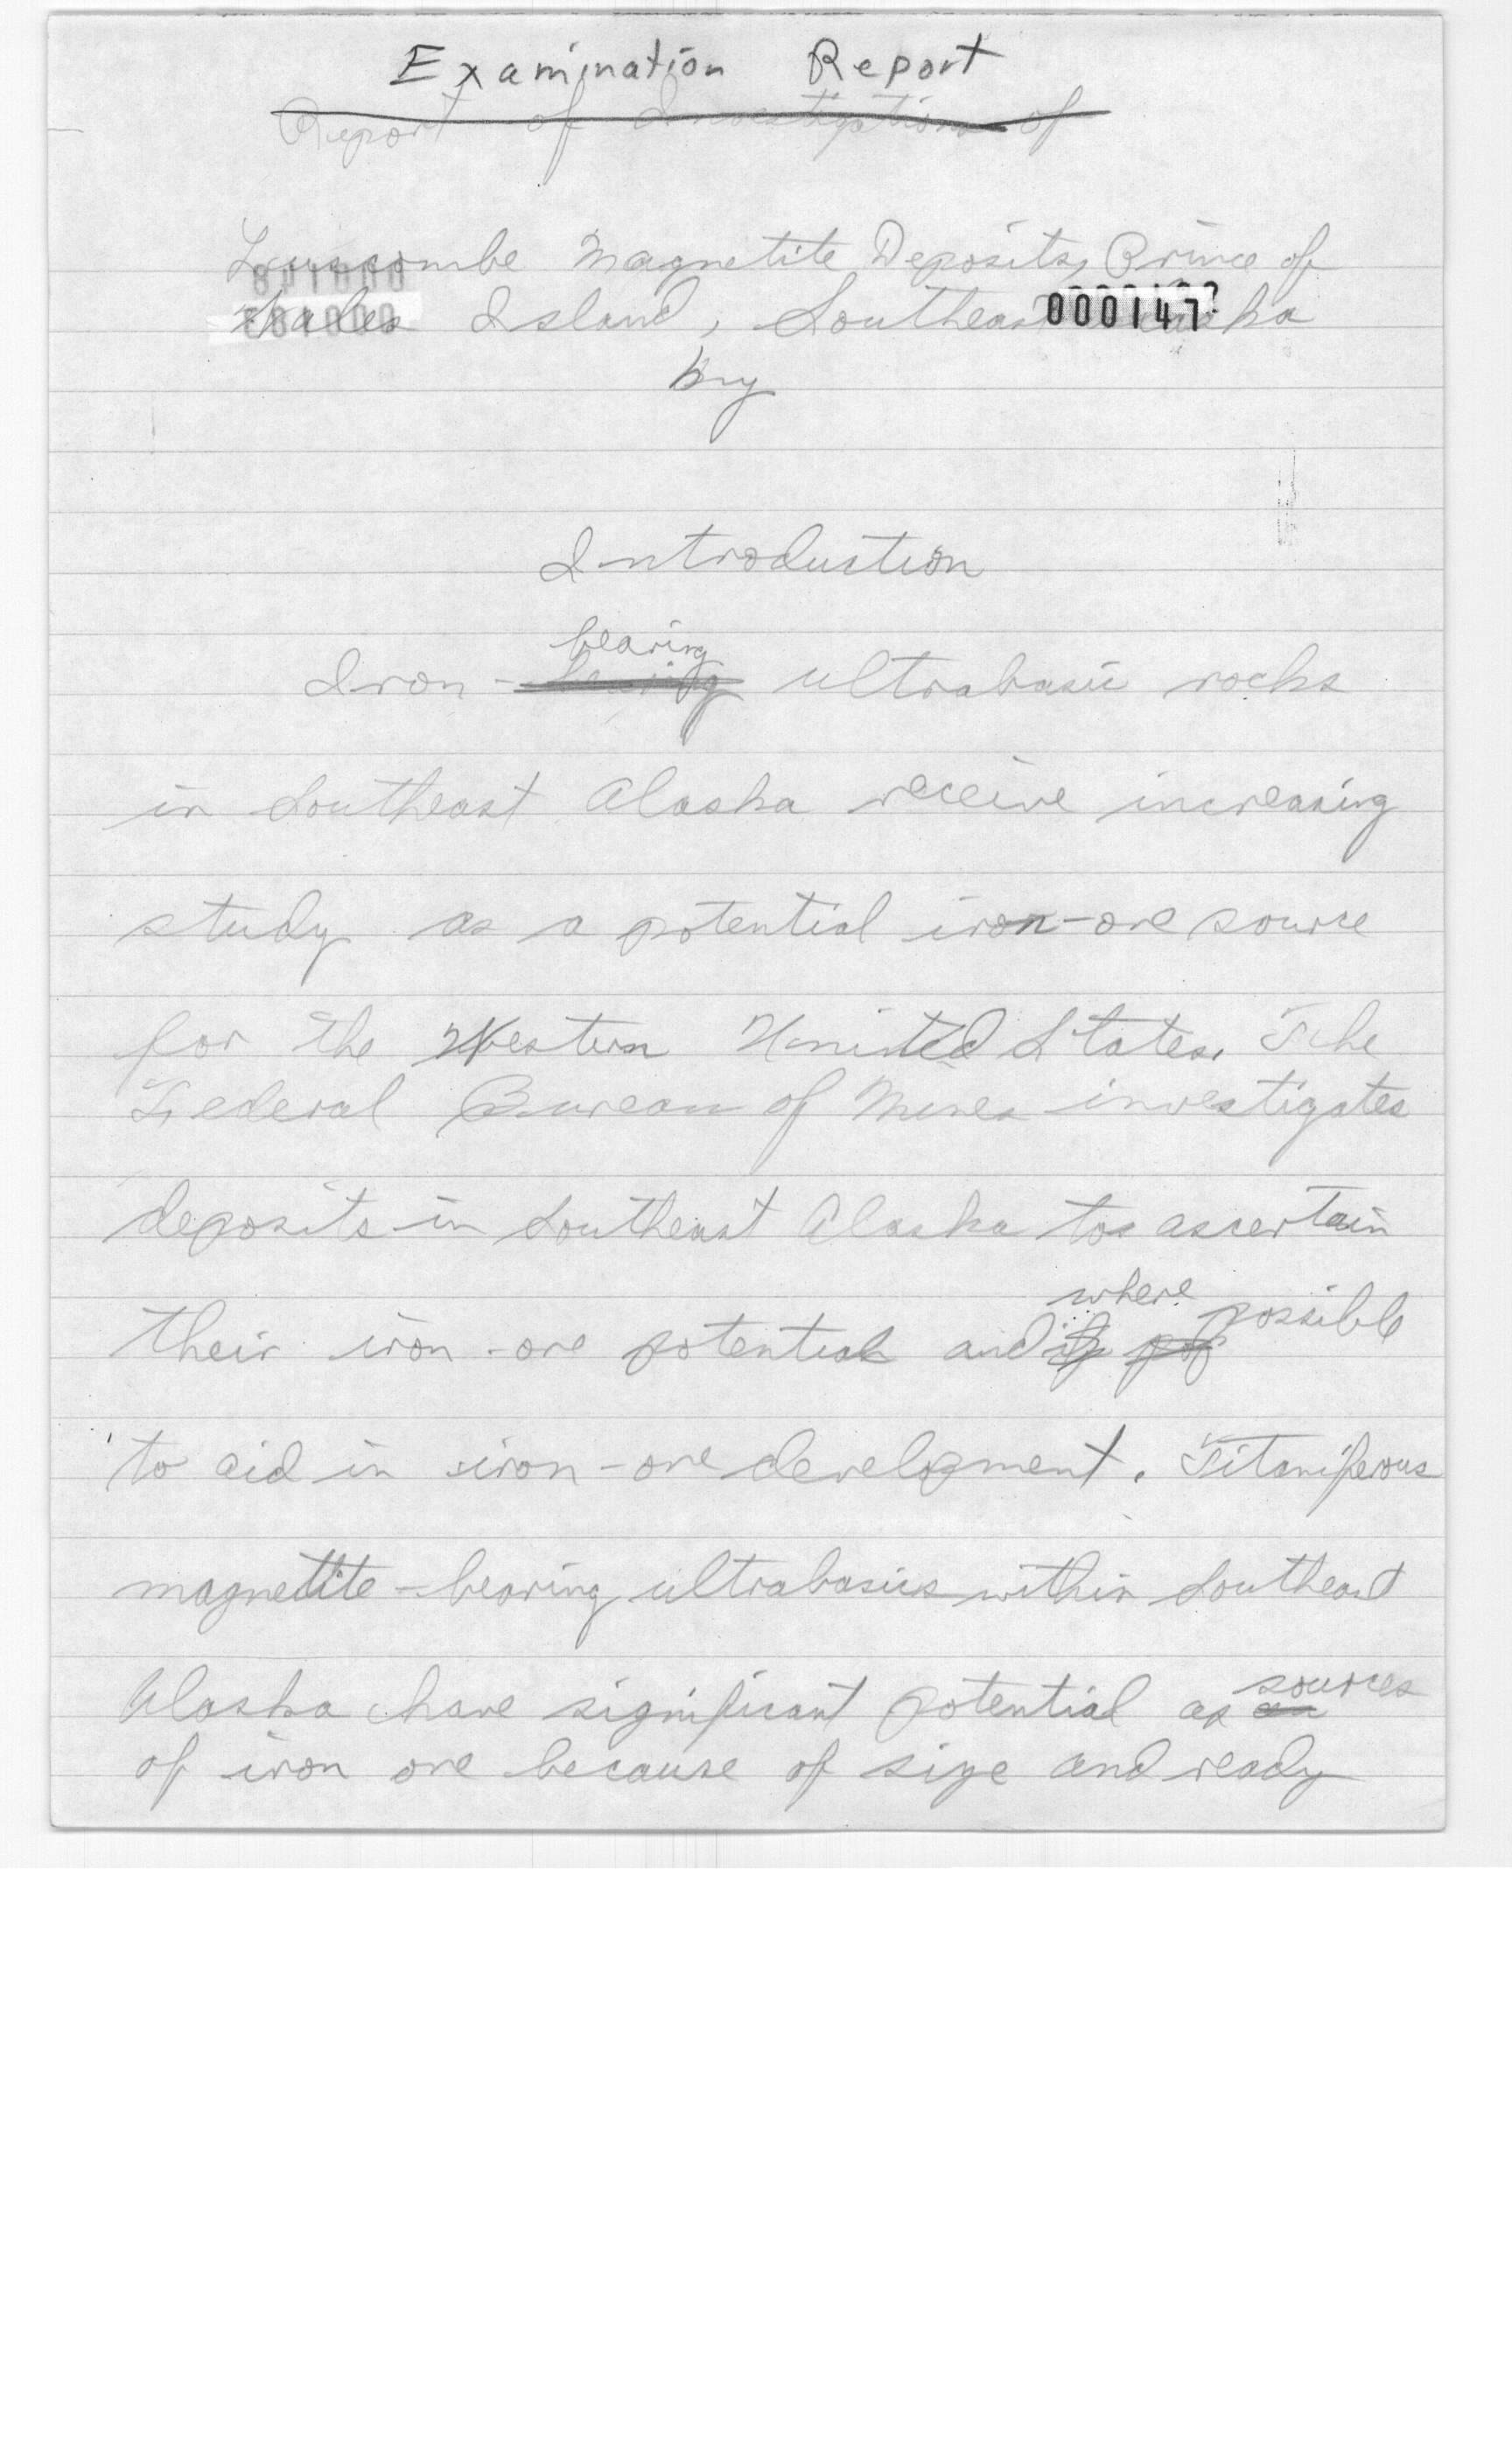 Examination Report
Report of Investigations of
Luscombe Magnetite Deposits, Prince of
Wales Island, Southeast Alaska
000147
by
Introduction
bearing
Iron - bearing ultrabasic rocks
in Southeast Alaska receive increasing
study as a potential iron-ore source
for the Western United States. The
Federal Bureau of Mines investigates
deposits in Southeast Alaska to ascertain
where possible
their iron-ore potential and if pos
to aid in iron-ore development. Titaniferous
magnetite-bearing ultrabasics within Southeast
sources
Alaska have significant potential as an
of iron ore because of size and ready